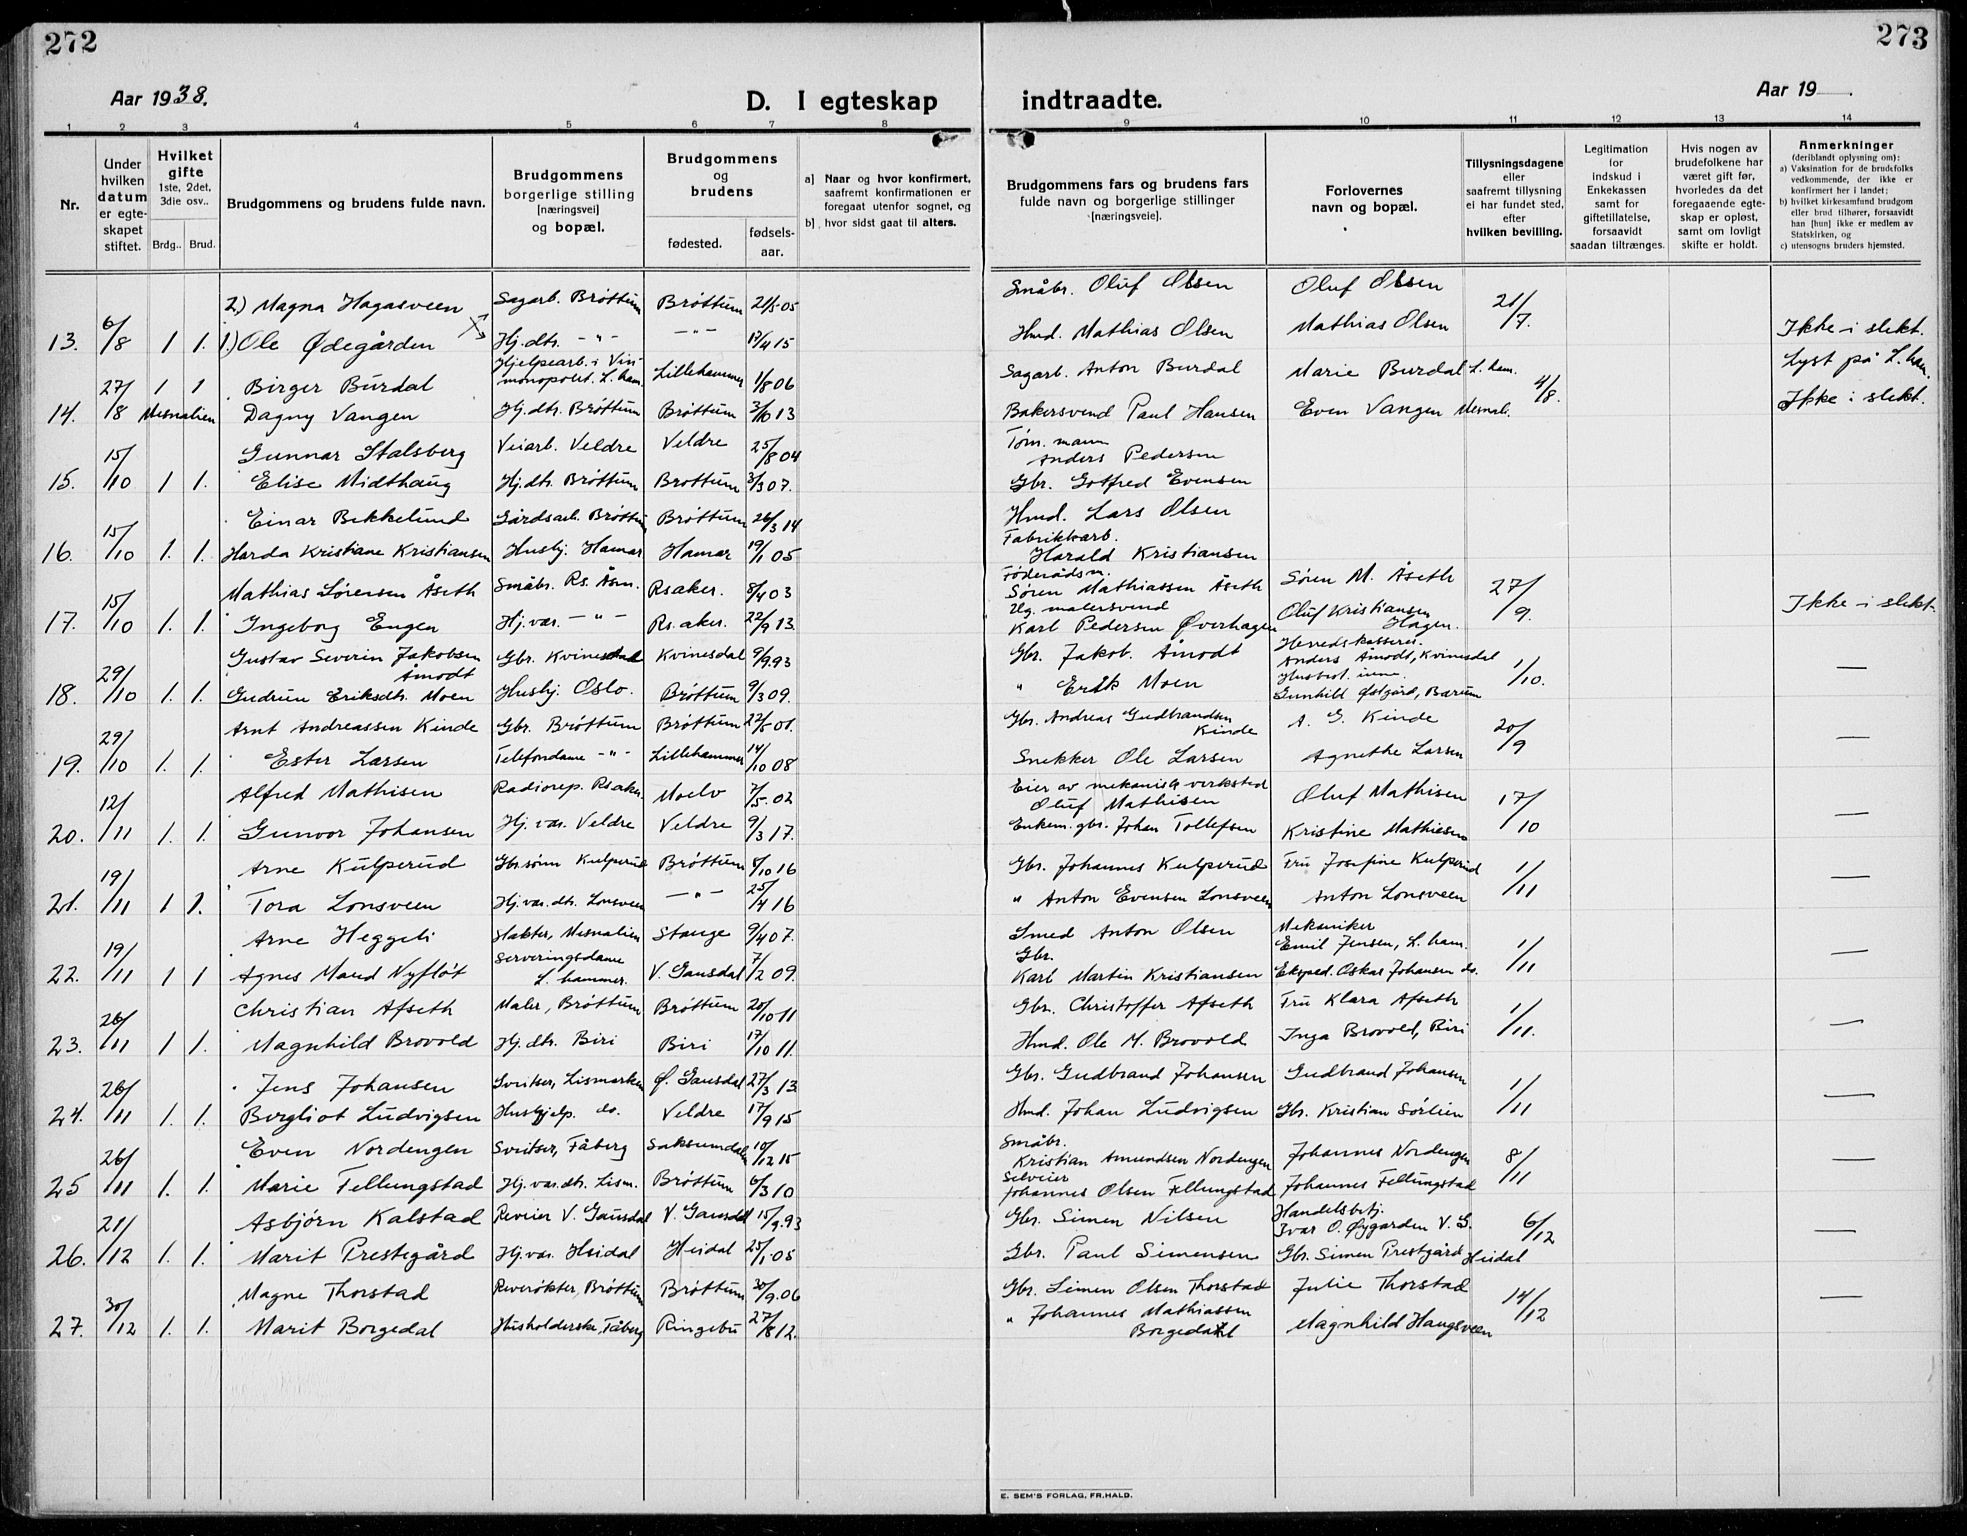 272
273
Aar 1938.
D. I egteskap
indtraadte.
Aar 19 .
1 2 3 4 5 6 7 8 9 10 11 12 13 14
Nr.
Under hvilken datum er egte-skapet stiftet.
Hvilket gifte 1ste, 2det, 3die osv..
Brdg.. Brud.
Brudgommens og brudens fulde navn.
Brudgommens borgerlige stilling [næringsvei] og bopæl.
Brudgommens og brudens
fødested.
fødsels-aar.
a] Naar og hvor konfirmert, saafremt konfirmationen er foregaat utenfor sognet, og
b] hvor sidst gaat til alters.
Brudgommens fars og brudens fars fulde navn og borgerlige stillinger [næringsveie].
Forlovernes navn og bopæl.
Tillysningsdagene eller saafremt tillysning ei har fundet sted, efter hvilken bevilling.
Legitimation for indskud i Enkekassen samt for giftetillatelse, forsaavidt saadan tiltrænges.
Hvis nogen av brudefolkene har været gift før, hvorledes da det foregaaende egte-skap er opløst, samt om lovligt skifte er holdt.
Anmerkninger (deriblandt oplysning om):
a) Vaksination for de brudefolks vedkommende, der ikke er konfirmert her i landet;
b) hvilket kirkesamfund brudgom eller brud tilhører, forsaavidt han [hun] ikke er medlem av Statskirken, og
c) utensogns bruders hjemsted.
2) Magna Hagasveen Sagarb. Brøttum Brøttum 21/5 05 Småbr. Oluf Olsen Oluf Olsen 21/7.
13. 6/8 1 1. 1.) Ole Ødegården Hj.dtr. -"- -"- 17/4 15 Hmd. Mathias Olsen Mathias Olsen Ikke i slekt.
27/8 1 1 Birger Burdal Hjelpearb. i Vin-monopolet. L. ham. Lillehammer 1/8 06 Sagarb. Anton Burdal Marie Burdal L. ham. 4/8. Lyst på L. ham.
14. Mesnalien Dagny Vangen Hj.dtr. Brøttum Brøttum 3/10 13 Bakersvend Paul Hansen Even Vangen Mesnal. Ikke i slekt.
Gunnar Stalsberg Veiarb. Veldre Veldre 25/8 04 Tøm. mann Anders Pedersen
15. 15/10 1 1. Elise Midthaug Hj.dtr. Brøttum Brøttum 3/3 07. Gbr. Gotfred Evensen
Einar Bekkelund Gårdsarb. Brøttum Brøttum 26/3 14 Hmd. Lars Olsen
16. 15/10 1. 1. Harda Kristiane Kristiansen Husbj. Hamar Hamar 19/1 05 Fabrikkarb. Harald Kristiansen
Mathias Sørensen Åseth Småbr. Rs. Åsm. Rsaker. 8/4 03 Føderådsm. Søren Mathiassen Åseth Søren M. Åseth 27/9.
17. 15/10 1. 1. Ingeborg Engen Hj.var. -"- Rs.aker. 22/9 13. Ug. malersvend Karl Pedersen Øverhagen Oluf Kristiansen Hagen. Ikke i slekt.
Gustav Severin Jakobsen Åmodt Gbr. Kvinesdal Kvinesdal 9/9.93 Gbr. Jakob. Åmodt Herredskasserer Anders Åmodt, Kvinesdal 1/10.
18. 29/10 1. 1. Gudrun Eriksdtr. Moen Husbj. Oslo. Brøttum 9/3 09. " Erik Moen Gunhild Østgård, Bærum —
Arnt Andreassen Kinde Gbr. Brøttum Brøttum 22/5 01. Gbr. Andreas Gudbrandsen Kinde A. G. Kinde 20/9
19. 29/10 1. 1. Ester Larsen Telefondame -"- Lillehammer 14/10 08 Snekker Ole Larsen Agnethe Larsen —
Alfred Mathisen Radiorep. Rsaker. Moelv 7/5.02 Eier av mekanisk verksted Oluf Mathisen Oluf Mathisen 17/10
20. 12/11 1. 1. Gunvor Johansen Hj.var. Veldre Veldre 9/3 17. Enkem. gbr. Johan Tollefsen Kristine Mathiesen —
Arne Kulperud Gbr.sønn Kulperud Brøttum 8/10 16 Gbr. Johannes Kulperud Fru Josefine Kulperud 1/11
21. 19/11 1 1. Tora Lonsveen Hj.var.dtr. Lonsveen -"- 25/4 16 " Anton Evensen Lonsveen Anton Lonsveen —
Arne Heggeli Mesnalien Stange 9/4 07. Smed Anton Olsen Mekaniker Emil Jensen, L. ham. 1/11
22. 19/11 1 1 Agnes Maud Nyfløt Serveringsdame L. hammer. V. Gausdal 7/2 09. Gbr. Karl Martin Kristiansen Eksped. Oskar Johansen do. —
Christian Afseth Maler, Brøttum Brøttum 20/10 11 Gbr. Christoffer Afseth Fru Klara Afseth 1/11.
23. 26/11 1 1. Magnhild Brovold Hj.dtr. Biri Biri 17/10 11. Hmd. Ole M. Brovold Inga Brovold, Biri —
Jens Johansen Sveitser, Lismarken Ø. Gausdal 27/3 13 Gbr. Gudbrand Johansen Gudbrand Johansen 1/11
24. 26/11 1. 1. Bergliot Ludvigsen Hushjelp. do. Veldre 17/9 15 Hmd. Johan Ludvigsen Gbr. Kristian Sørlien —
Even Nordengen Sveitser, Fåberg Saksumdalen 10/12 15 Småbr. Kristian Amundsen Nordengen Johannes Nordengen 8/11
25 26/11 1. 1. Marie Fellungstad Hj.var.dtr. Lism. Brøttum 6/3 10 Selveier Johannes Olsen Fellungstad Johannes Fellungstad —
Asbjørn Kalstad V. Gausdal V. Gausdal 15/9.93 Gbr. Simen Nilsen Handelsbetj. Ivar O. Øygarden V. G. 6/12
26. 21/12 1. 1. Marit Prestegård Hj.var. Heidal Heidal 25/1 05 Gbr. Paul Simensen Gbr. Simen Prestgård Heidal —
Magne Thorstad Reverøkter, Brøttum Brøttum 30/9.06 Gbr. Simen Olsen Thorstad Julie Thorstad 14/12
27. 30/12 1. 1. Marit Borgedal Husholderske, Fåberg Ringebu 27/8 12. " Johannes Mathiassen Borgedal Magnhild Haugsveen —
E. SEM'S FORLAG, FR.HALD.